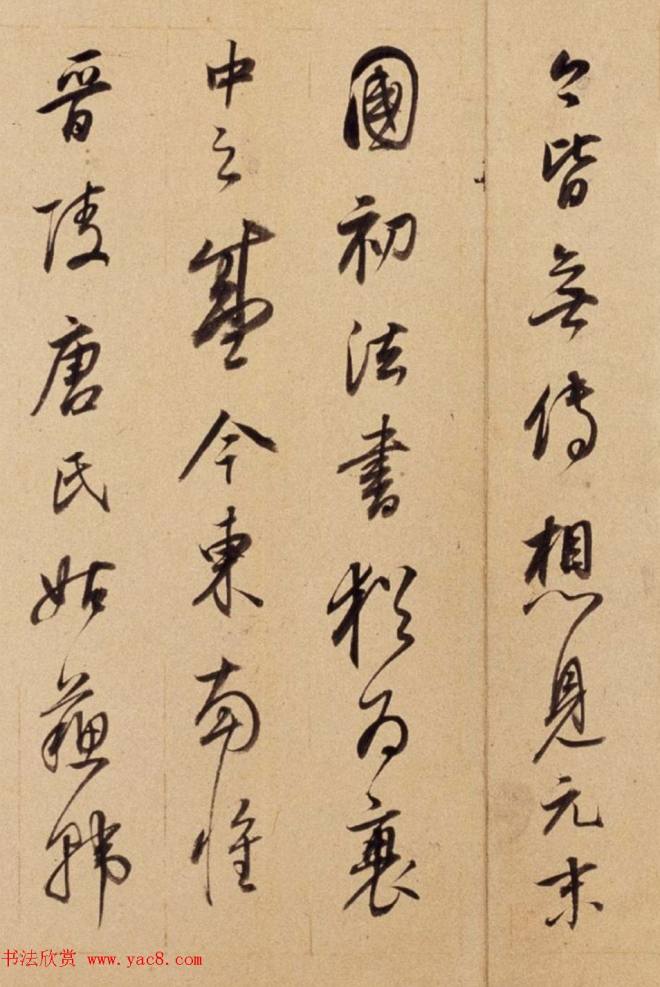 今皆無傳想見元末
國初法書猶為衰
中之盛今東南惟
晉陵唐氏姑蘇韓
书法欣赏 www.yac8.com